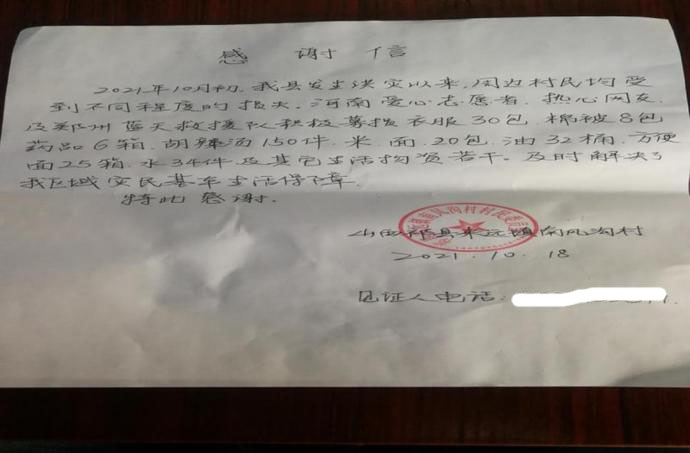 感谢信
2021年10月初,我县发生洪灾以来,周边村民均受
到不同程度的损失。河南爱心志愿者、热心网友
及郑州蓝天救援队积极募捐衣服30包、棉被8包
药品6箱、胡辣汤150件、米、面、20包、油32桶、方便
面25箱、水34件及其它生活物资若干。及时解决了
我区域灾民基本生活保障.
特此感谢.
山西祁县来远镇南风沟村
2021.10.18
见证人电话: